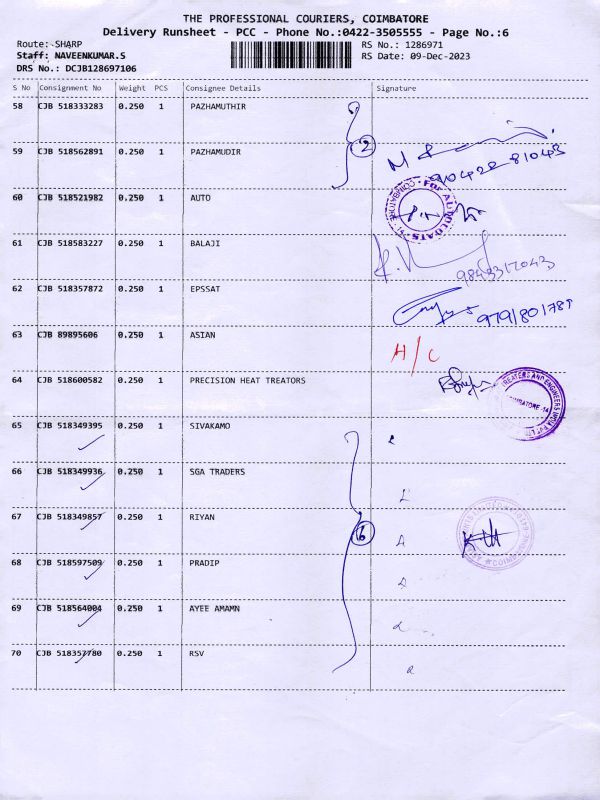 THE PROFESSIONAL COURIERS, COIMBATORE
Delivery Runsheet - PCC - Phone No.:0422-3505555 - Page No.:6
Route: SHARP
RS No.: 1286971
Staff: NAVEENKUMAR.S
RS Date: 09-Dec-2023
DRS No.: DCJB128697106
S No Consignment No Weight PCS Consignee Details Signature
58 CJB 518333283 0.250 1 PAZHAMUTHIR
2
59 CJB 518562891 0.250 1 PAZHAMUDIR
90428 81043
60 CJB 518521982 0.250 1 AUTO
61 CJB 518583227 0.250 1 BALAJI
62 CJB 518357872 0.250 1 EPSSAT
63 CJB 89895606 0.250 1 ASIAN H/C
64 CJB 518600582 0.250 1 PRECISION HEAT TREATORS
65 CJB 518349395 0.250 1 SIVAKAMO
66 CJB 518349936 0.250 1 SGA TRADERS
67 CJB 518349857 0.250 1 RIYAN 6
68 CJB 518597509 0.250 1 PRADIP
69 CJB 518564004 0.250 1 AYEE AMAMN
70 CJB 518357780 0.250 1 RSV